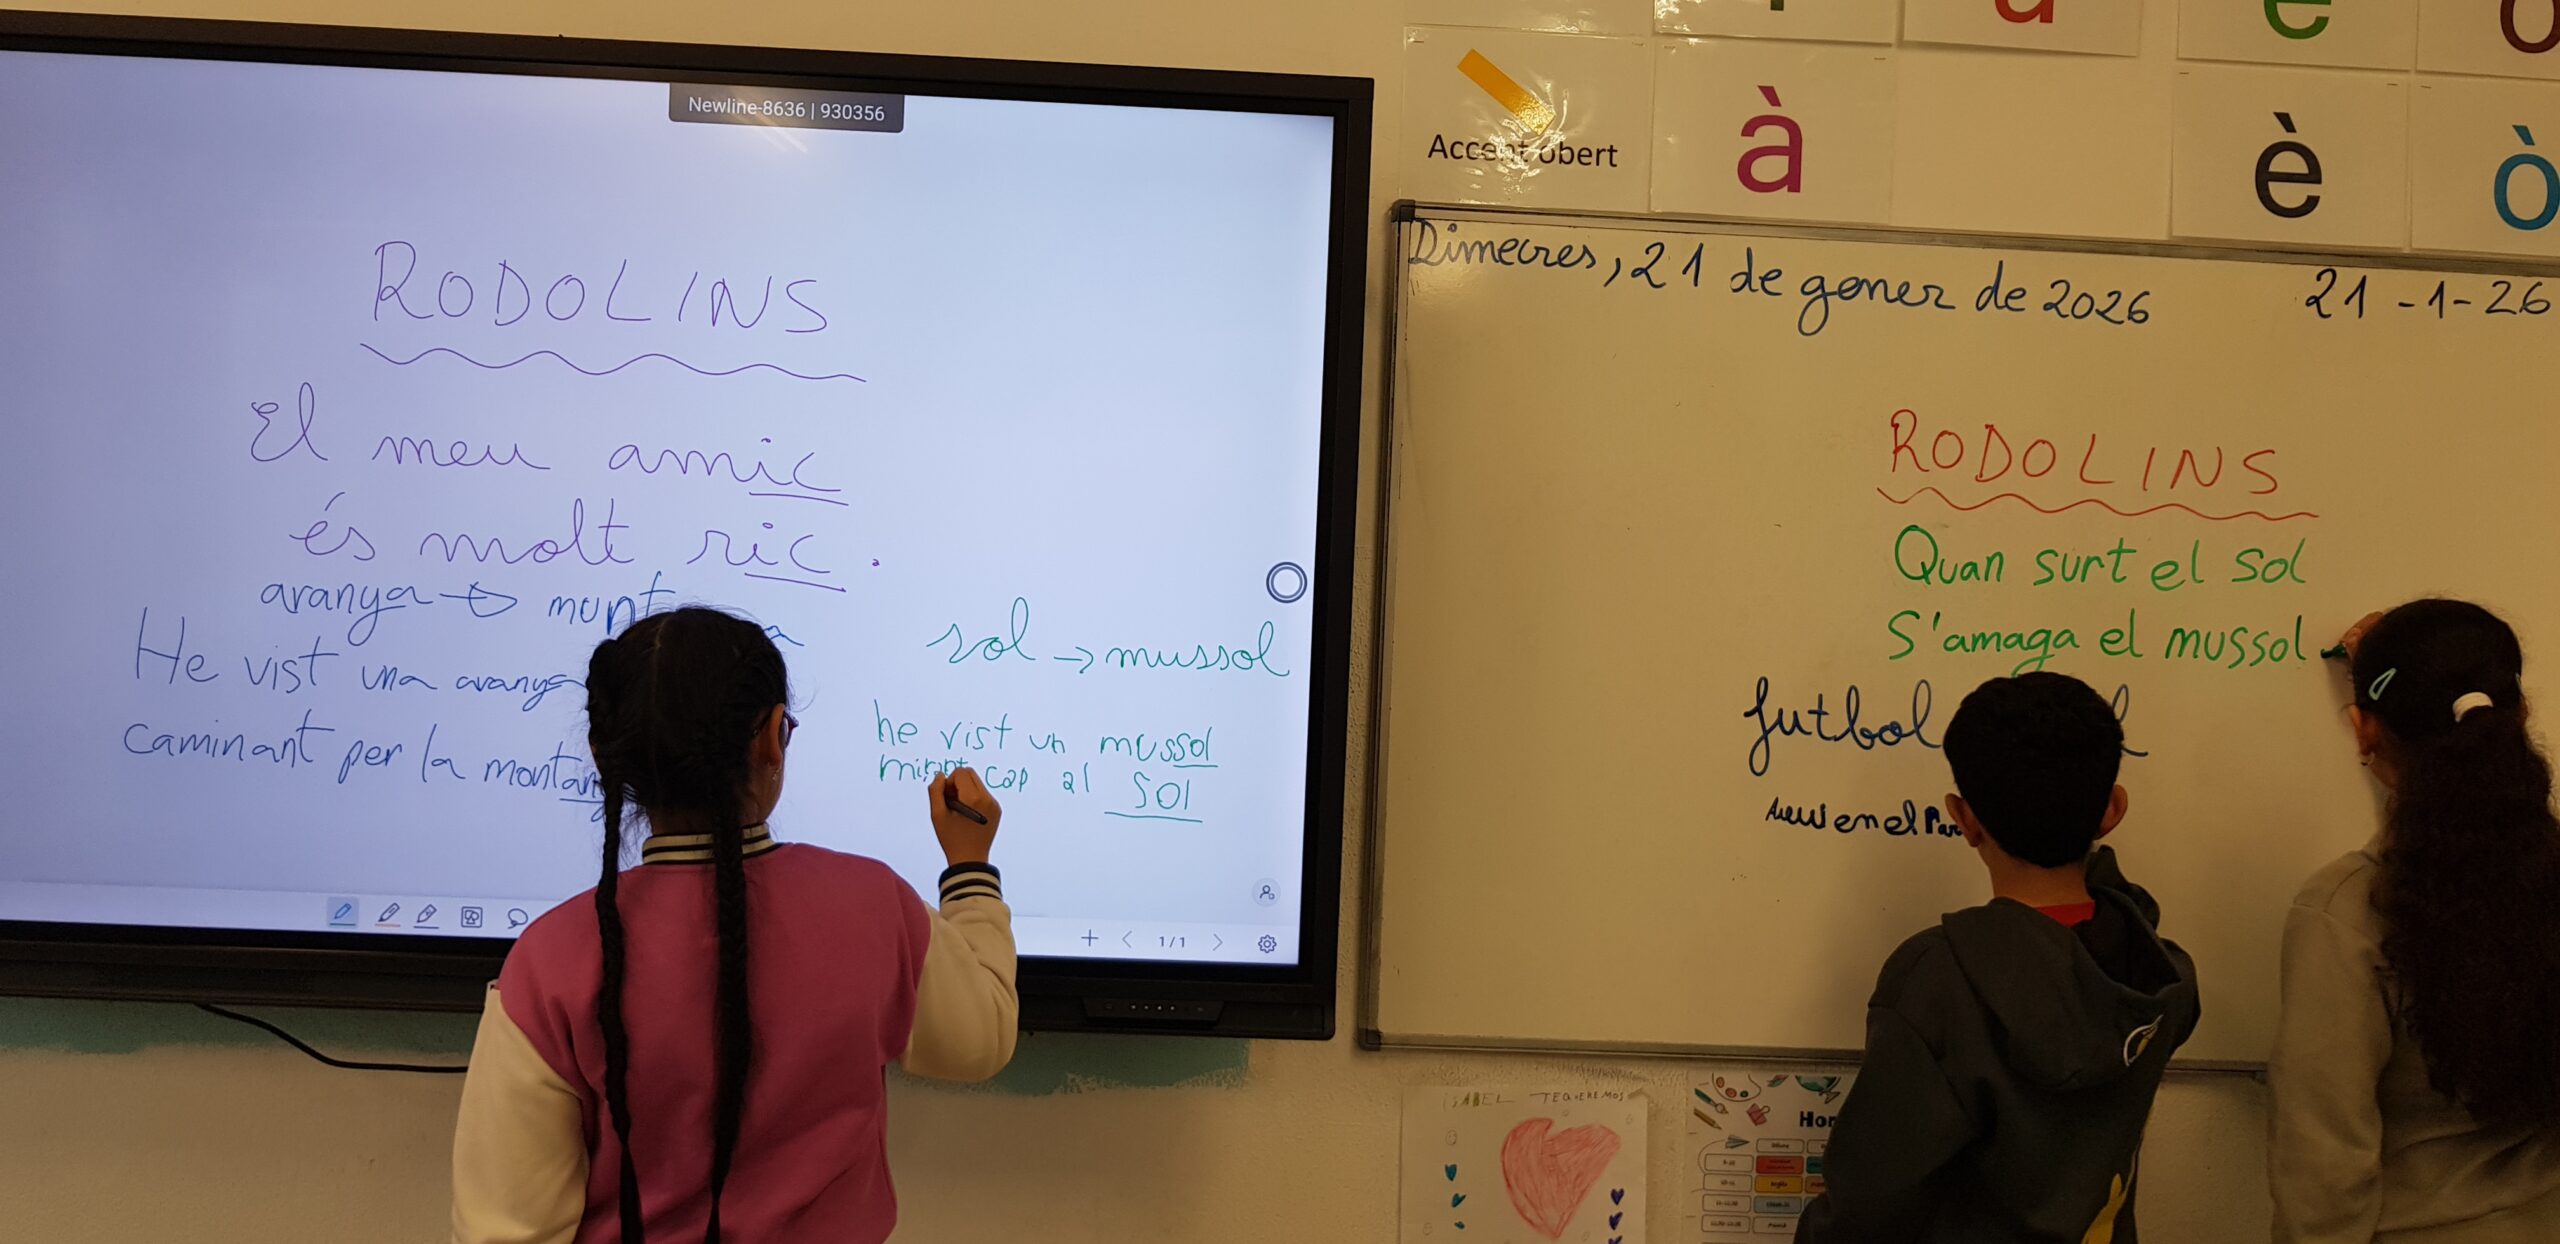 Newline-8636 | 930356
RODOLINS
El meu amic
és molt ric.
aranya →
He vist una aranya
caminant per la
sol → mussol
he vist un mussol
mirant cap al sol
1/1
Accent obert
à
è
ò
Dimecres, 21 de gener de 2026
21-1-26
RODOLINS
Quan surt el sol
S'amaga el mussol
futbol
en el
ISABEL TEQUEREMOS
Hor